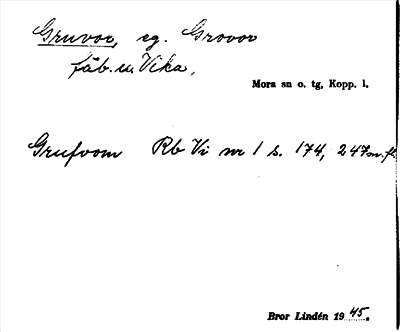 Gruvor, eg. Grovor
fäb. u. Vika,
Mora sn o. tg, Kopp. l.
Grufvorn Rb Vi nr 1 s. 174, 247 m. fl.
Bror Lindén 1945.